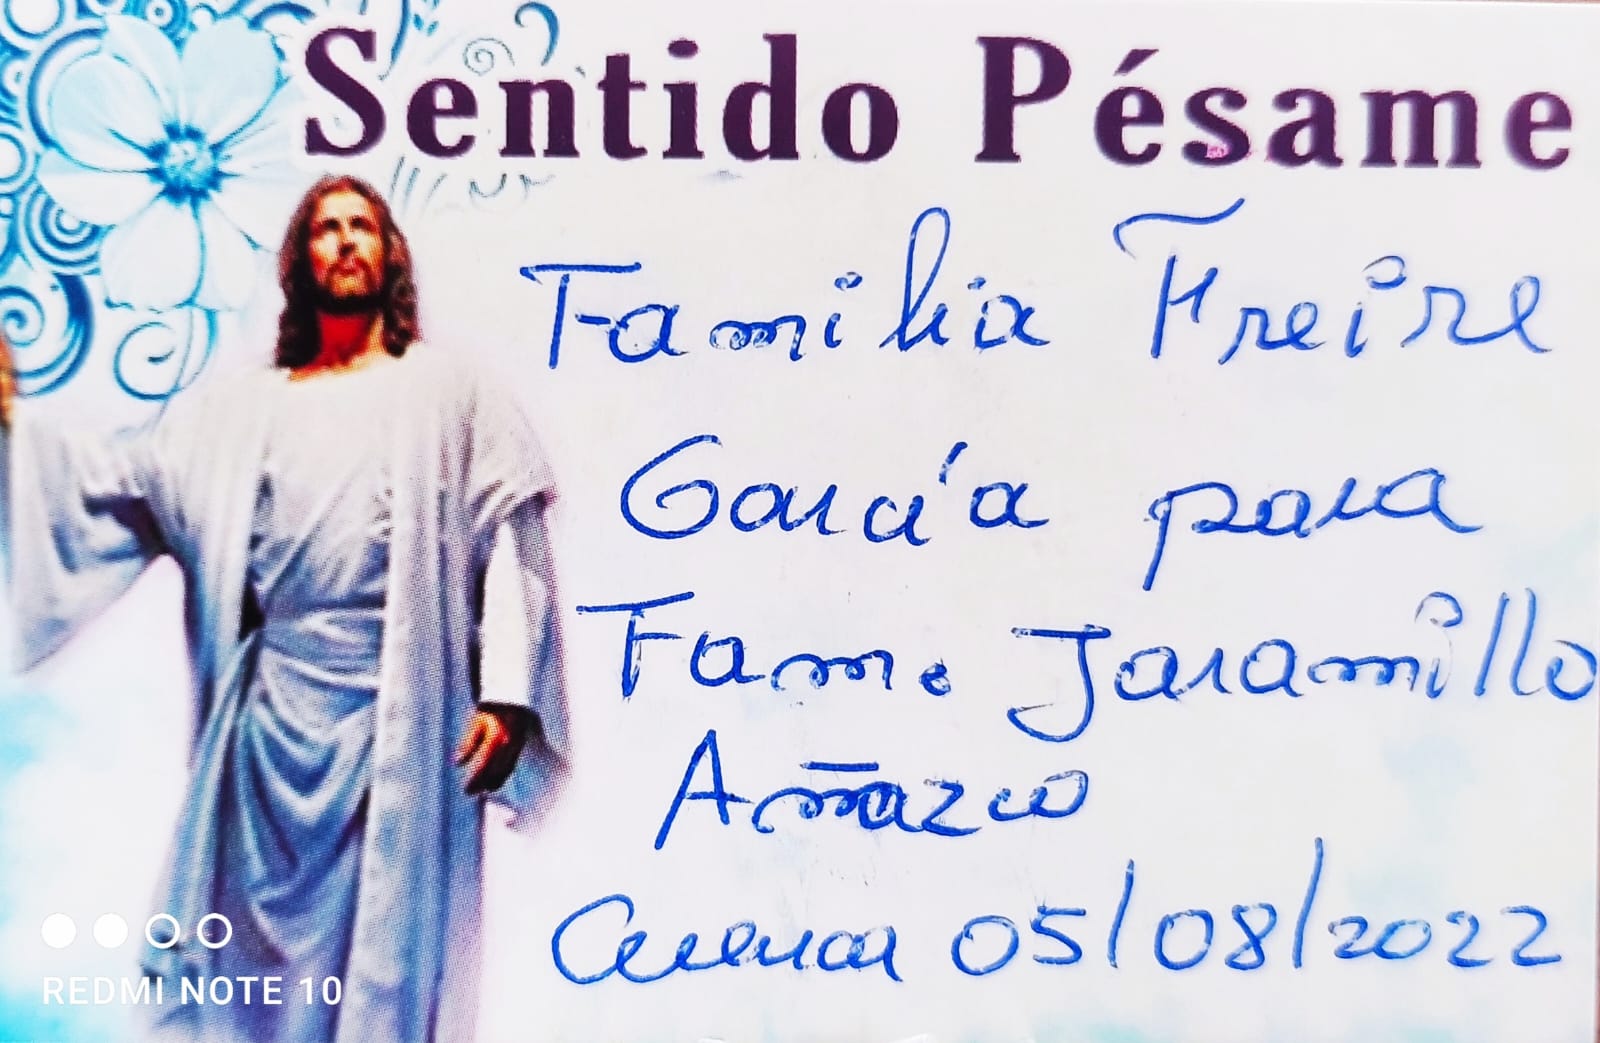 Sentido Pésame
Familia Freire
García para
Fam. Jaramillo
Añazco
Cuenca 05/08/2022
REDMI NOTE 10